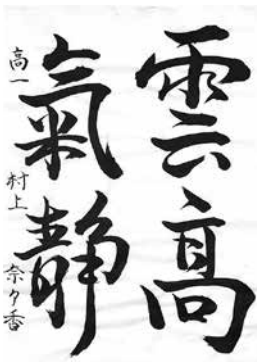 雲高
氣静
高一 村上 奈々香